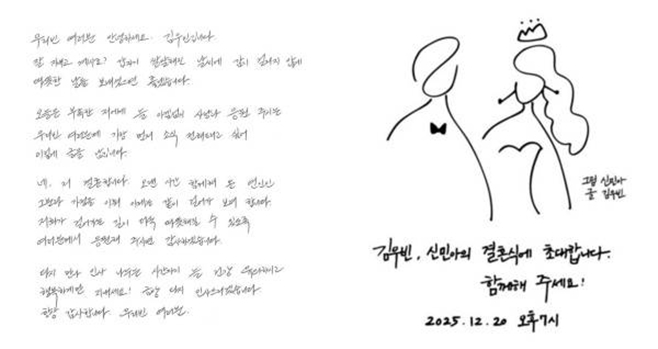 우리빈 여러분 안녕하세요. 김우빈입니다.
잘 지내고 계시죠? 갑자기 쌀쌀해진 날씨에 감기 걸리지 않게
따뜻한 날들 보내셨으면 좋겠습니다.
오늘은 부족한 저에게 늘 아낌없이 사랑과 응원 주시는
우리빈 여러분께 가장 먼저 소식 전해드리고 싶어
이렇게 글을 남깁니다.
네, 저 결혼합니다. 오랜 시간 함께해 온 연인인
그분과 가정을 이뤄 이제는 같이 걸어가 보려 합니다.
저희가 걸어가는 길이 더욱 따뜻해질 수 있도록
여러분께서 응원해 주시면 감사하겠습니다.
다시 만나 인사 나누는 시간까지 늘 건강
행복하게만 지내세요! 금방 다시 인사드리겠습니다.
항상 감사합니다. 우리빈 여러분.
그림 신민아
글 김우빈
김우빈, 신민아의 결혼식에 초대합니다.
함께해 주세요!
2025.12.20 오후7시